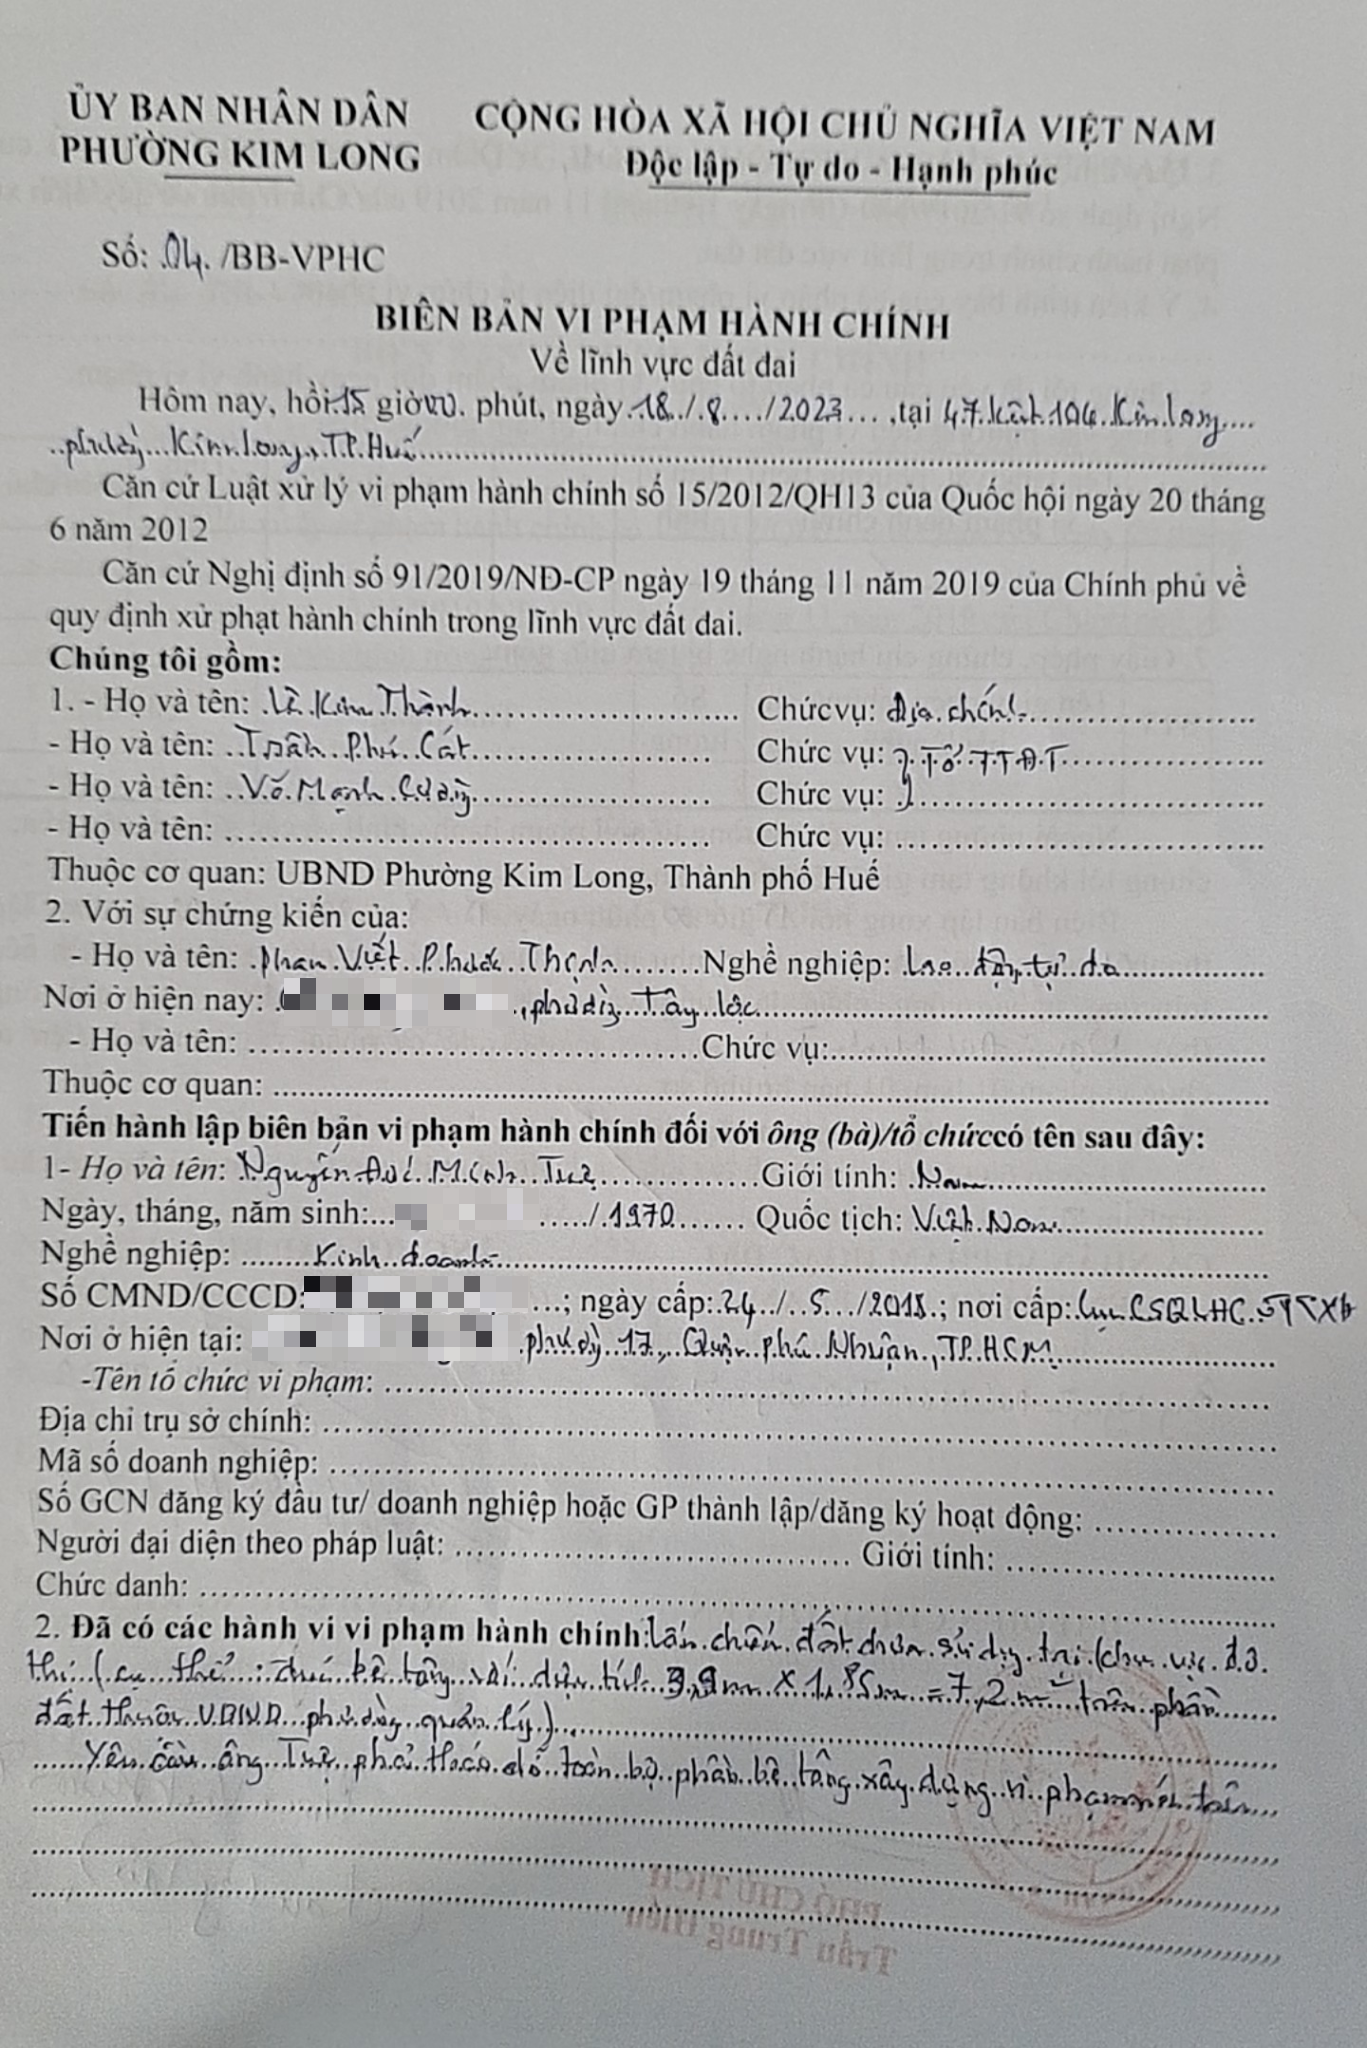 ỦY BAN NHÂN DÂN
PHƯỜNG KIM LONG
CỘNG HÒA XÃ HỘI CHỦ NGHĨA VIỆT NAM
Độc lập - Tự do - Hạnh phúc
Số: 04. /BB-VPHC
BIÊN BẢN VI PHẠM HÀNH CHÍNH
Về lĩnh vực đất đai
Hôm nay, hồi 15 giờ 00. phút, ngày 18../.8..../2023...,tại 47 kiệt 104 Kim Long
phường Kim Long, TP Huế
Căn cứ Luật xử lý vi phạm hành chính số 15/2012/QH13 của Quốc hội ngày 20 tháng
6 năm 2012
Căn cứ Nghị định số 91/2019/NĐ-CP ngày 19 tháng 11 năm 2019 của Chính phủ về
quy định xử phạt hành chính trong lĩnh vực đất đai.
Chúng tôi gồm:
1. - Họ và tên: Lê Kim Thành Chứcvụ: Địa chính
- Họ và tên: Trần Phú Cát Chức vụ: Tổ TTĐT
- Họ và tên: Võ Mạnh Cường Chức vụ:
- Họ và tên: Chức vụ:
Thuộc cơ quan: UBND Phường Kim Long, Thành phố Huế
2. Với sự chứng kiến của:
- Họ và tên: Phan Viết Phước Thịnh Nghề nghiệp: lao động tự do
Nơi ở hiện nay: , phường Tây Lộc
- Họ và tên: Chức vụ:
Thuộc cơ quan:
Tiến hành lập biên bản vi phạm hành chính đối với ông (bà)/tổ chứccó tên sau đây:
1- Họ và tên: Nguyễn Đức Minh Giới tính: Nam
Ngày, tháng, năm sinh: /1970 Quốc tịch: Việt Nam
Nghề nghiệp: Kinh doanh
Số CMND/CCCD: ; ngày cấp: 24../..5.../2018.; nơi cấp:
Nơi ở hiện tại: phường 17, Quận Phú Nhuận, TP HCM
-Tên tổ chức vi phạm:
Địa chỉ trụ sở chính:
Mã số doanh nghiệp:
Số GCN đăng ký đầu tư/ doanh nghiệp hoặc GP thành lập/đăng ký hoạt động:
Người đại diện theo pháp luật: Giới tính:
Chức danh:
2. Đã có các hành vi vi phạm hành chính: lấn chiếm đất chưa sử dụng tại khu vực đô
thị (cụ thể: đúc bê tông với diện tích 3,9m x 1,85m = 7,2 m² trên phần
đất thuộc UBND phường quản lý)
Yêu cầu ông phải tháo dỡ toàn bộ phần bê tông xây dựng vi phạm nói trên
PHÓ CHỦ TỊCH
Trần Trung Hiếu